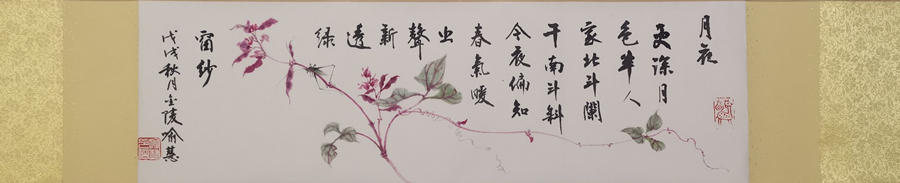 月夜
更深月
色半人
家北斗闌
干南斗斜
今夜偏知
春氣暖
虫聲新透绿
窗紗
戊戌秋月金陵喻慧